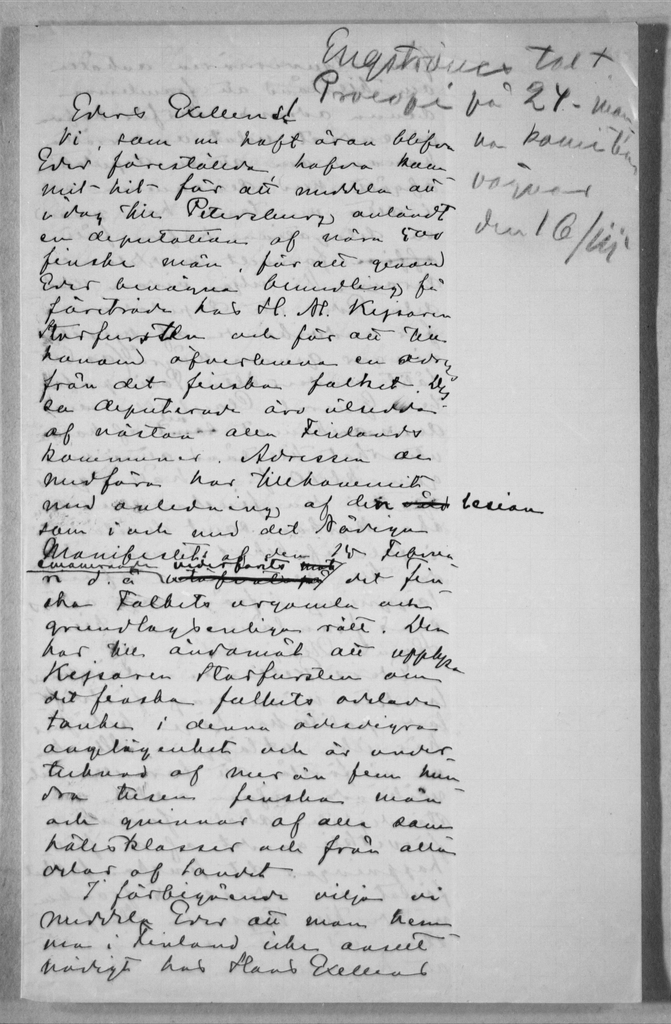 Engströms tal t
Procopé på 24-man
na komiténs
vägnar
den 16/III
Eders Exellens!
Vi, som nu haft äran blifva
Eder föreställda, hafva kom-
mit hit för att meddela att
i dag till Petersburg anländt
en deputation af nära 500
finske män, för att genom
Eder benägna bemedling få
företräde hos H. M. Kejsaren
Storfursten och för att till
honom öfverlemna en adress
från det finska folket. Des-
sa deputerade äro utsedda
af nästan alla Finlands
kommuner. Adressen de
medföra har tillkommit
med anledning af den lesion
som i och med det Nådiga
Manifestets af den 15 Februa-
emanerande vederfarits
ri d. å. det fin-
ska Folkets urgamla och
grundlagsenliga rätt. Den
har till ändamål att upplysa
Kejsaren Storfursten om
det finska folkets odelade
tanke i denna ödesdigra
angelägenhet och är under-
tecknad af mer än fem hun-
dra tusen finska män
och qvinnor af alla sam-
hällsklasser och från alla
delar af landet.
I förbigående vilja vi
meddela Eder att man hem-
ma i Finland icke ansett
nödigt hos Hans Exellens